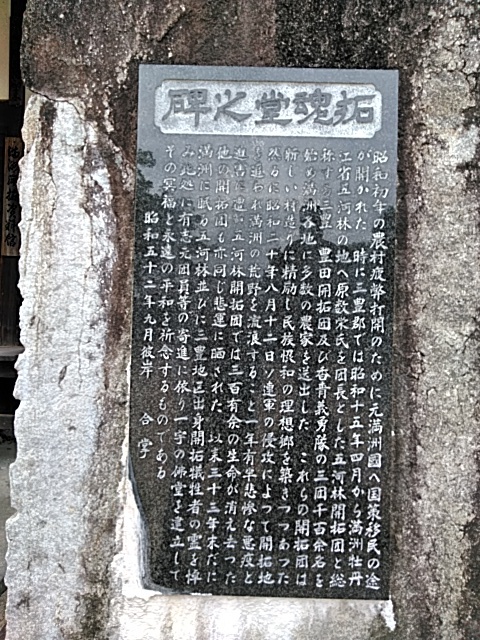 拓魂堂之碑
昭和初年の農村疲弊打開のために元満洲國へ国策移民の途
が開かれた 時に三豊郡では昭和十五年四月から満洲牡丹
江省五河林の地へ原数栄氏を団長とした五河林開拓団と総
称する三豊 豊田開拓団及び青義勇隊の三団千百余名を
始め満洲各地に多数の農家を送出した これらの開拓団は
新しい村造りに精励し民族恊和の理想郷を築きつつあった
然るに昭和二十年八月十二日ソ連軍の侵攻によって開拓地
を追われ満洲の荒野を流浪すること一年有半悲惨な悪疫と
遭遇五河林開拓団では三百有余の生命が消え去った
他の開拓団も亦同じ悲運に晒された 以来三十三年未だに
満洲に眠る五河林並びに三豊地区出身開拓犠牲者の霊を悼
み此処に有志元団員等の寄進に依り一宇の佛堂を建立して
その冥福と永遠の平和を祈念するものである
昭和五十二年九月彼岸 合掌